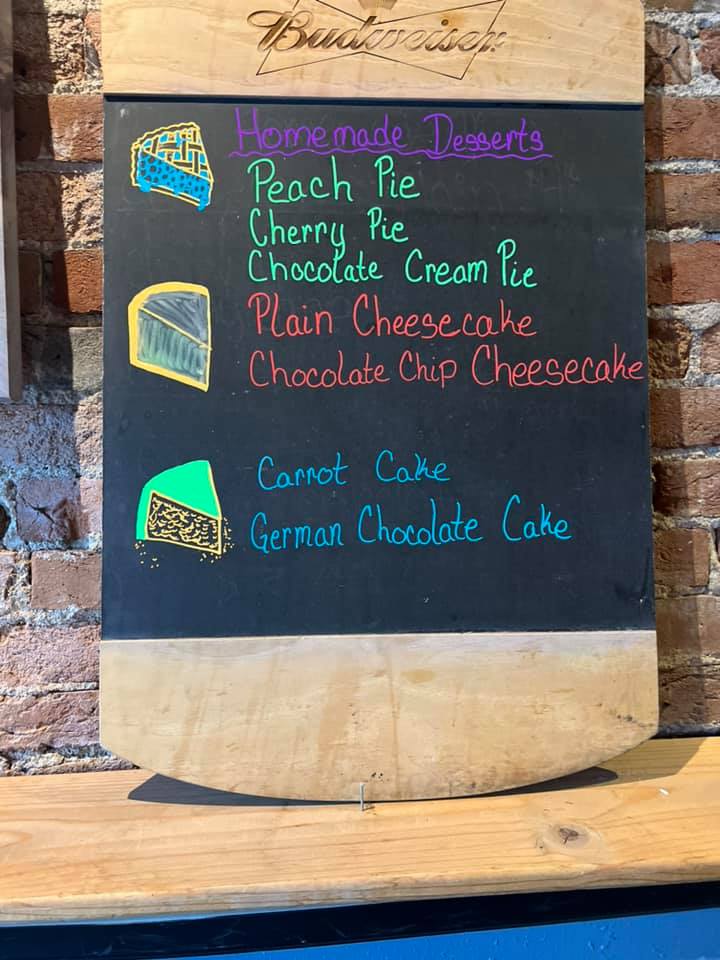 Budweiser
Homemade Desserts
Peach Pie
Cherry Pie
Chocolate Cream Pie
Plain Cheesecake
Chocolate Chip Cheesecake
Carrot Cake
German Chocolate Cake